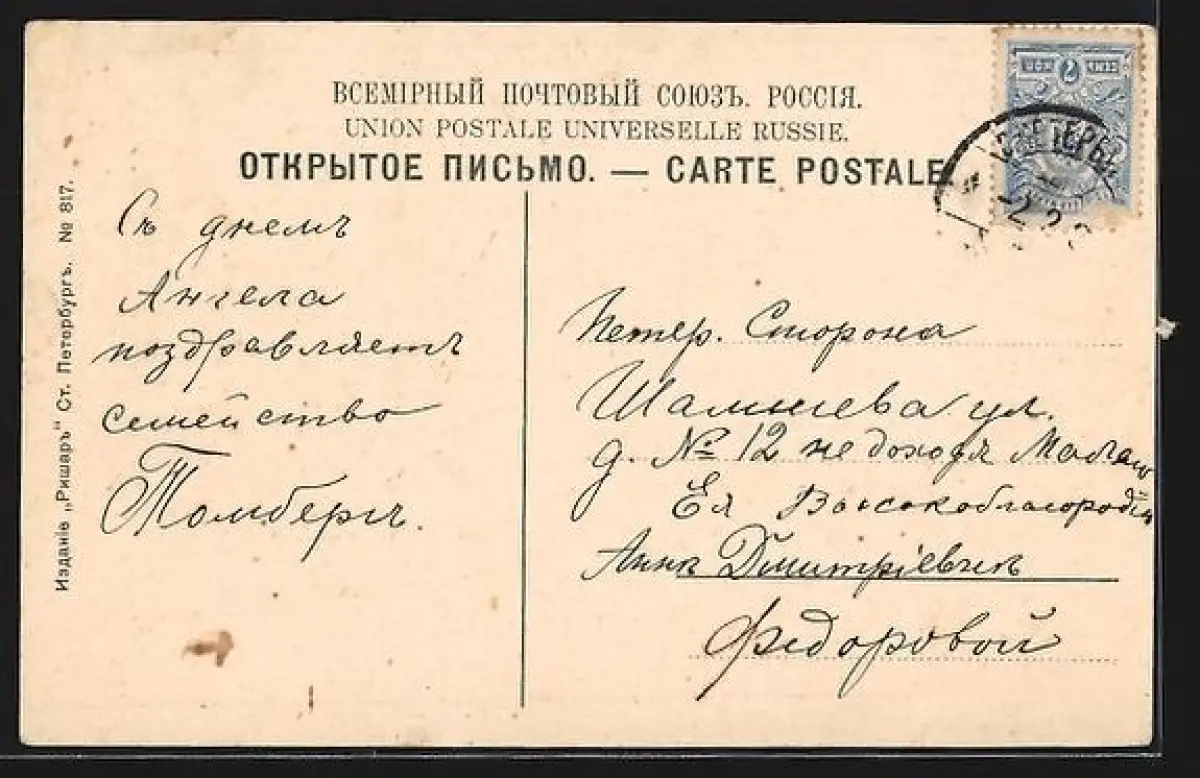 ВСЕМІРНЫЙ ПОЧТОВЫЙ СОЮЗЪ. РОССІЯ.
UNION POSTALE UNIVERSELLE RUSSIE.
ОТКРЫТОЕ ПИСЬМО. — CARTE POSTALE.
Изданіе „Ришаръ" Ст. Петербургъ. № 817.
Съ днемъ
Ангела
поздравляетъ
семейство
Томбергъ.
Петер. Сторона
Шамшева ул.
д. № 12 не доходя Малаго
Ея Высокоблагородію
Аннѣ Дмитріевнѣ
Федоровой